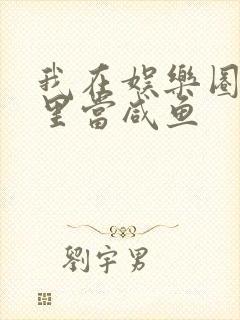 我在娛樂圈
里當咸魚
劉宇男